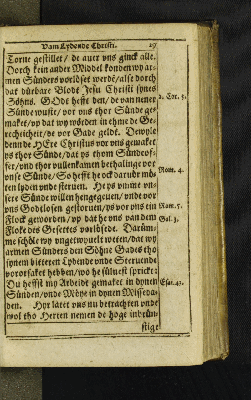 Vam Lydende Christi. 29
Torne gestillet / de auer vns ginck alle.
Dorch kein ander Middel konden wy ar-
men Sünders vorlöset werdē/ alse dorch
dat dürbare Blodt Jesu Christi synes
Söhns. GOdt hefft den / de van nener 2. Cor. 5.
Sünde wuste / vor vns thor Sünde ge-
maket / vp dat wy wörden in ehme de Ge-
rechticheit / de vor Gade geldt. Dewyle
denn de HEre Christus vor vns gemaket
ys thor Sünde / dat ys thom Sündeof-
fer / vnd thor vullenkamen bethalinge vor
vnse Sünde / So hefft he ock darudr mö- Rom. 4.
ten lyden vnde steruen. He ys vmme vn-
sere Sünde willen hengegeuen / vnde vor
vns Godlosen gestoruen / ys vor vns ein Rom. 5.
Flock geworden / vp dat he vns van dem Gal. 3.
Floke des Gesettes vorlösede. Darüm-
me schöle wy vngetwyuelt weten / dat wy
armen Sünders den Söhne Gades tho
synem bitteren Lydende vnde Steruende
vororsaket hebben / wo he sülvest spricket:
Du heffst my Arbeidt gemaket in dynen Esa. 43.
Sünden / vnde Möye in dynen Misseda-
den. Hyr latet vns nu betrachten vnde
wol tho Herten nemen de hoge inbrün-
stige